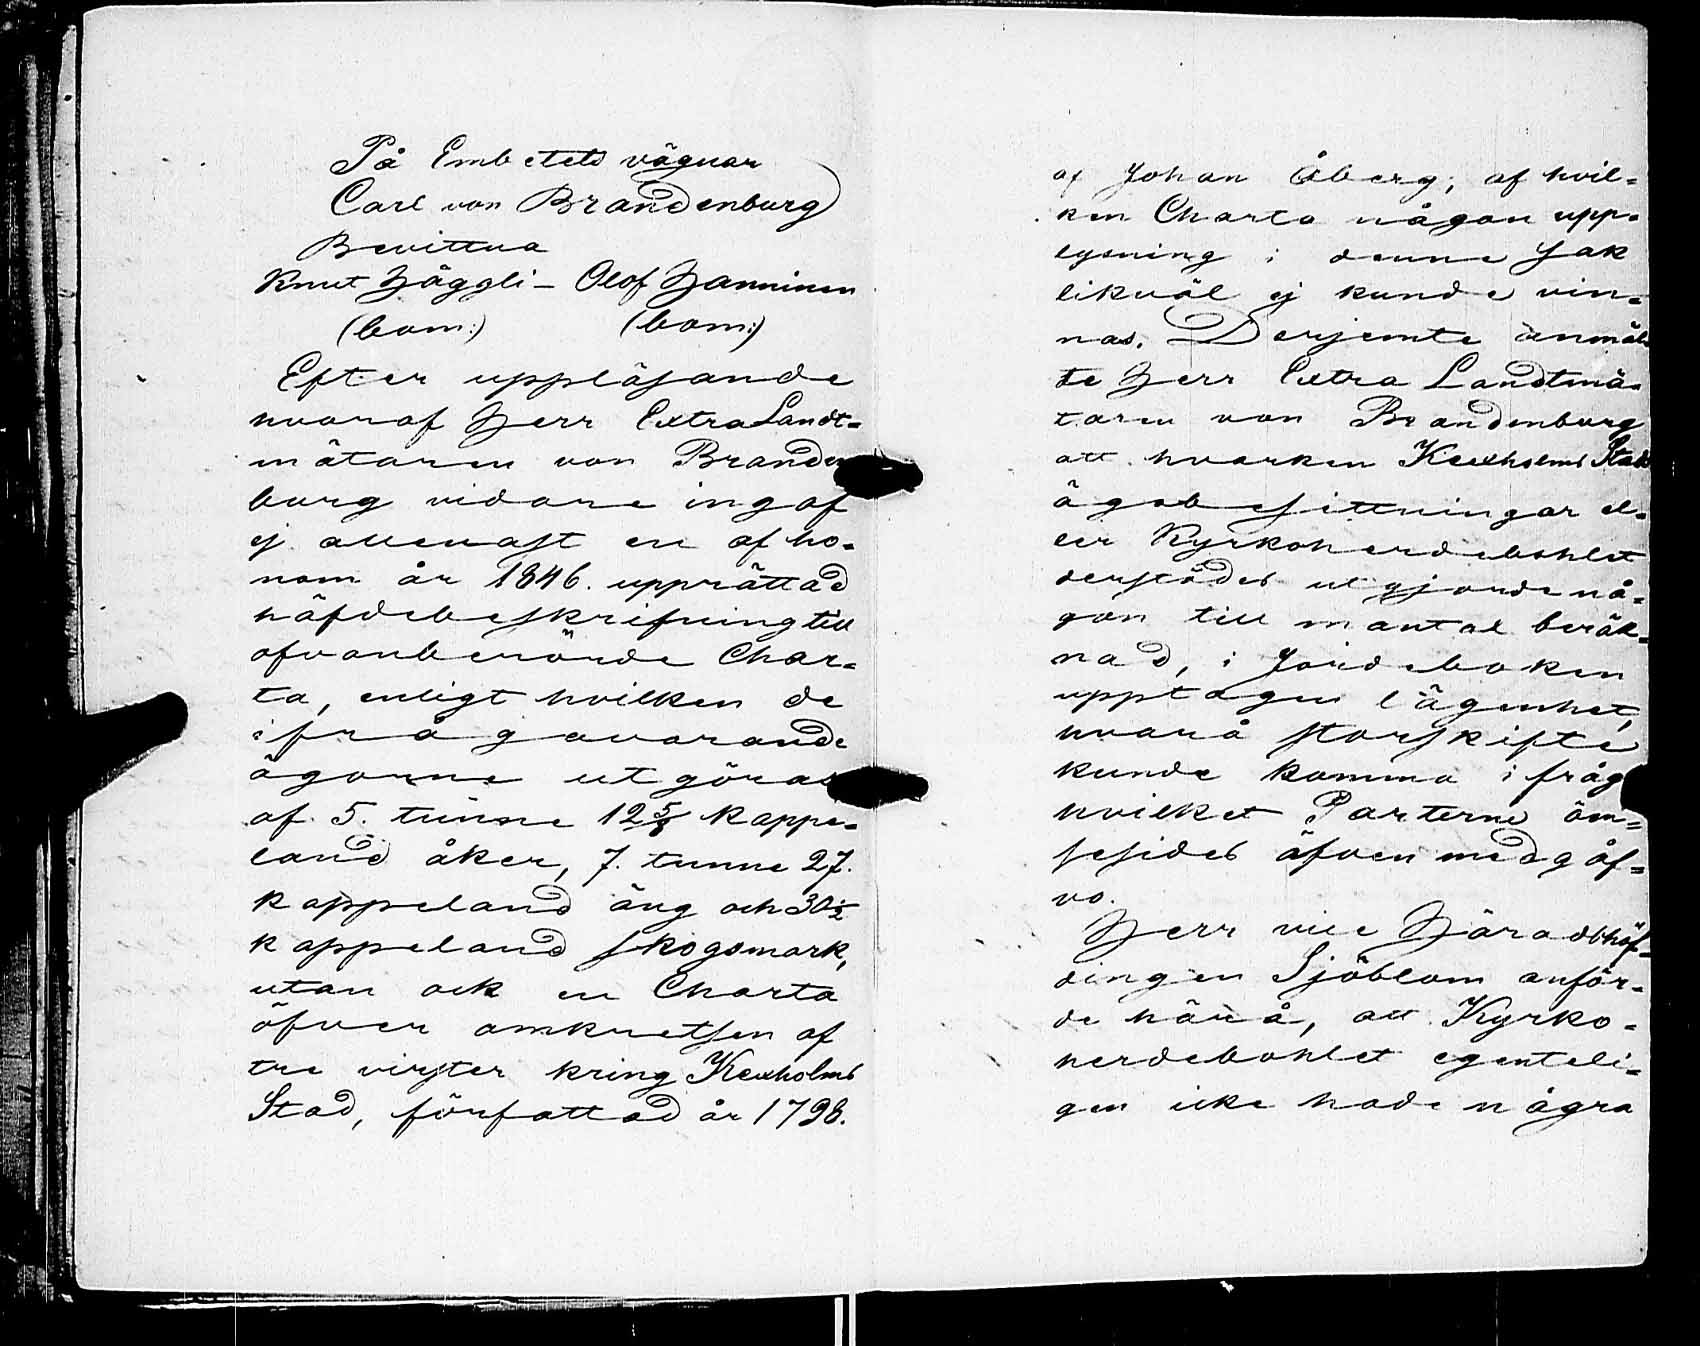 På Embetets vägnar
Carl von Brandenburg
Bevittna
Knut Häggli - Olof Hanninen
(bom:) (bom:)
Efter uppläsande
hvaraf Herr Extra Landt=
mätaren von Branden
burg vidare ingaf
ej allenast en af ho=
nom år 1846. upprättad
häfdebeskrifning till
ofvanberörde Char=
ta, enligt hvilken de
ifrågavarande
ägorne utgöras
af 5. tunne 12 5/8 kappe=
land åker, 7. tunne 27.
kappeland äng och 30 1/2
kappeland skogsmark,
utan ock en Charta
öfver omkretsen af
tre virster kring Kexholms
Stad, författad år 1798.
af Johan Åberg, af hvil=
ken Charta någon upp=
lysning i denne sak
likväl ej kunde vin=
nas. Derjemte anmäl
te Herr Extra Landtmä=
taren von Brandenburg
att hvarken Kexholms Stads
ägobesittningar el=
ler Kyrkoherdebohlet
derstädes utgjorde nå=
gon till mantal beräk=
nad, i Jordeboken
upptagen lägenhet,
hvarå storskifte
kunde komma i fråg
hvilket Parterne öm=
sesides äfven medgåf=
vo.
Herr vice Häradshöf=
dingen Sjöblom anför=
de härå, att Kyrko=
herdebohlet egenteli=
gen icke hade några